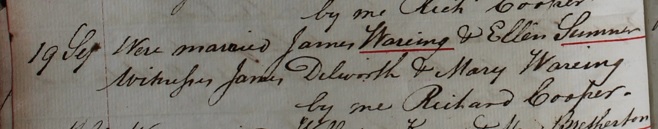 by me Rich Cooper
19 Sep Were married James Wareing & Ellen Sumner
Witnesses James Dilworth & Mary Wareing
by me Richard Cooper.